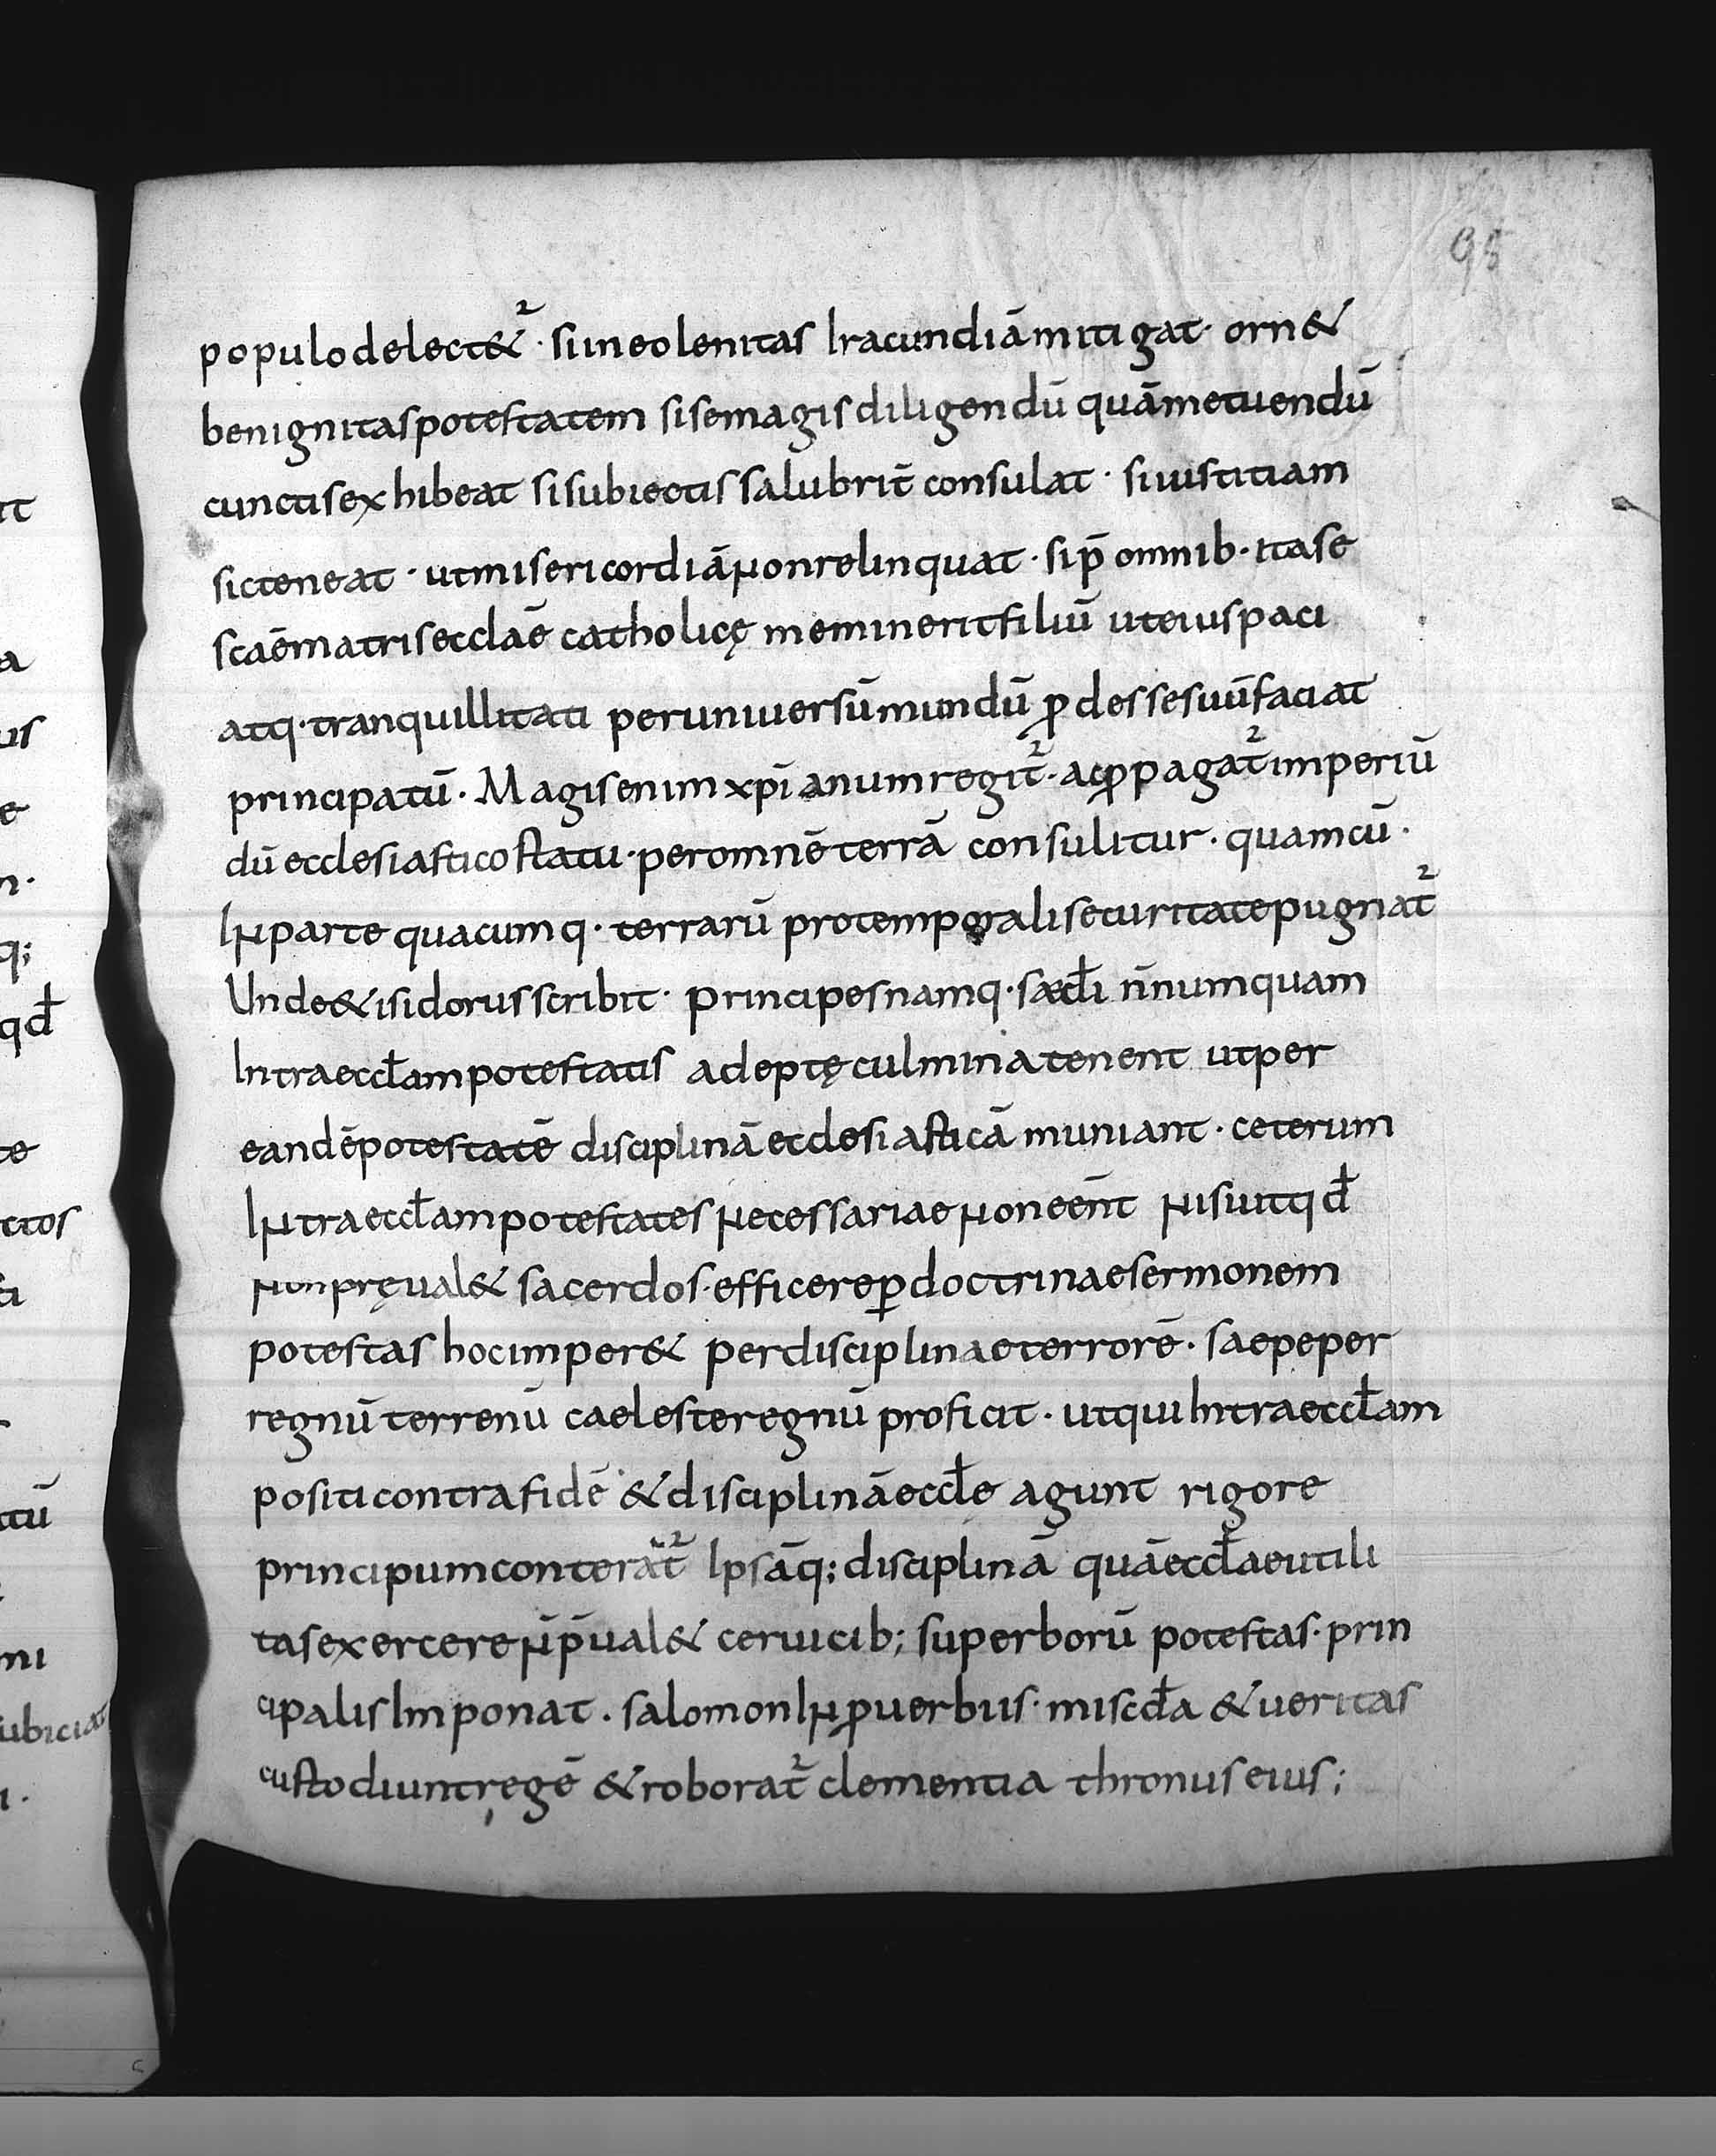 95
populo delect&ur · si in eo lenitas Iracundiā mitigat · orn&
benignitas potestatem si se magis diligendū quā metuendū
cunctis exhibeat si subiectis salubrit̄ consulat · si iustitiam
sic teneat · ut misericordiā non relinquat · si p̄ omnib· ita se
scāe matris ecclāe catholicę meminerit filiū ut eius paci
atq· tranquillitati per uniuersū mundū ꝓdesse suū faciat
principatū · Magis enim xp̄ianum regit̄² · ac ꝓpagat̄² imperiū
dū ecclesiastico statu · per omnē terrā consulitur · quam cū ·
In parte quacumq· terrarū pro temporali securitate pugnat̄²
Unde & isidorus scribit · principes namq· sæcƚi n̄numquam
Intra eccƚam potestatis adeptę culmina tenent ut per
eandē potestatē disciplinā ecclesiasticā muniant · ceterum
Intra eccƚam potestates necessariae non eēnt nisi ut qđ
non pręual& sacerdos · efficere ꝑ doctrinae sermonem
potestas hoc imper& per disciplinae terrorē · saepe per
regnū terrenū caeleste regnū proficit · ut qui Intra eccƚam
positi contra fidē & disciplinā eccƚę agunt rigore
principum conterat̄² Ipsāq; disciplinā quā eccƚae utili
tas exercere n̄ p̄ual& ceruicib; superborū potestas · prin
cipalis Imponat · salomon In ꝓuerbiis · miscđa & ueritas
custodiunt regē & roborat̄² clementia thronus eius ;